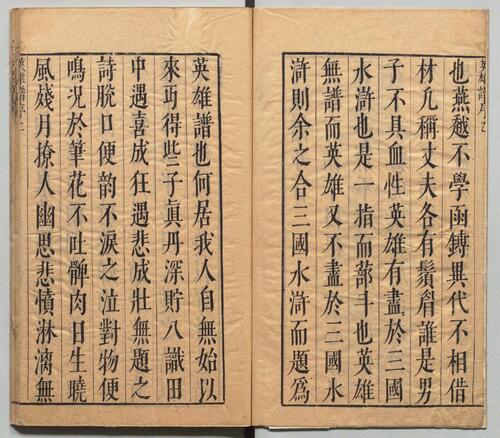 也燕越不學函鏄異代不相借
材凡稱丈夫各有鬚眉誰是男
子不具血性英雄有盡於三國
水滸也是一指而蔀斗也英雄
無譜而英雄又不盡於三國水
滸則余之合三國水滸而題為
英雄譜也何居我人自無始以
來丐得些子真丹深貯八識田
中遇喜成狂遇悲成壯無題之
詩脫口便韵不淚之泣對物便
鳴況於筆花不吐髀肉日生曉
風殘月撩人幽思悲憤淋漓無
英雄譜序
英雄譜序二